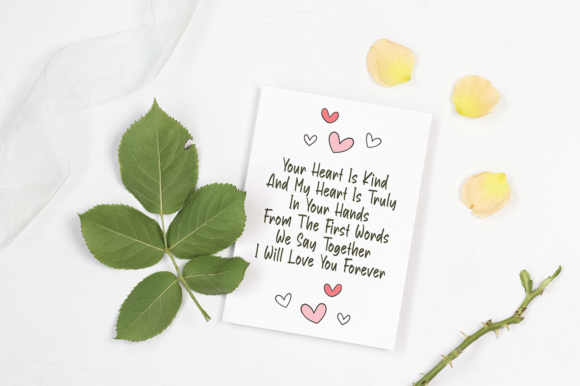 Your Heart Is Kind
And My Heart Is Truly
In Your Hands
From The First Words
We Say Together
I Will Love You Forever